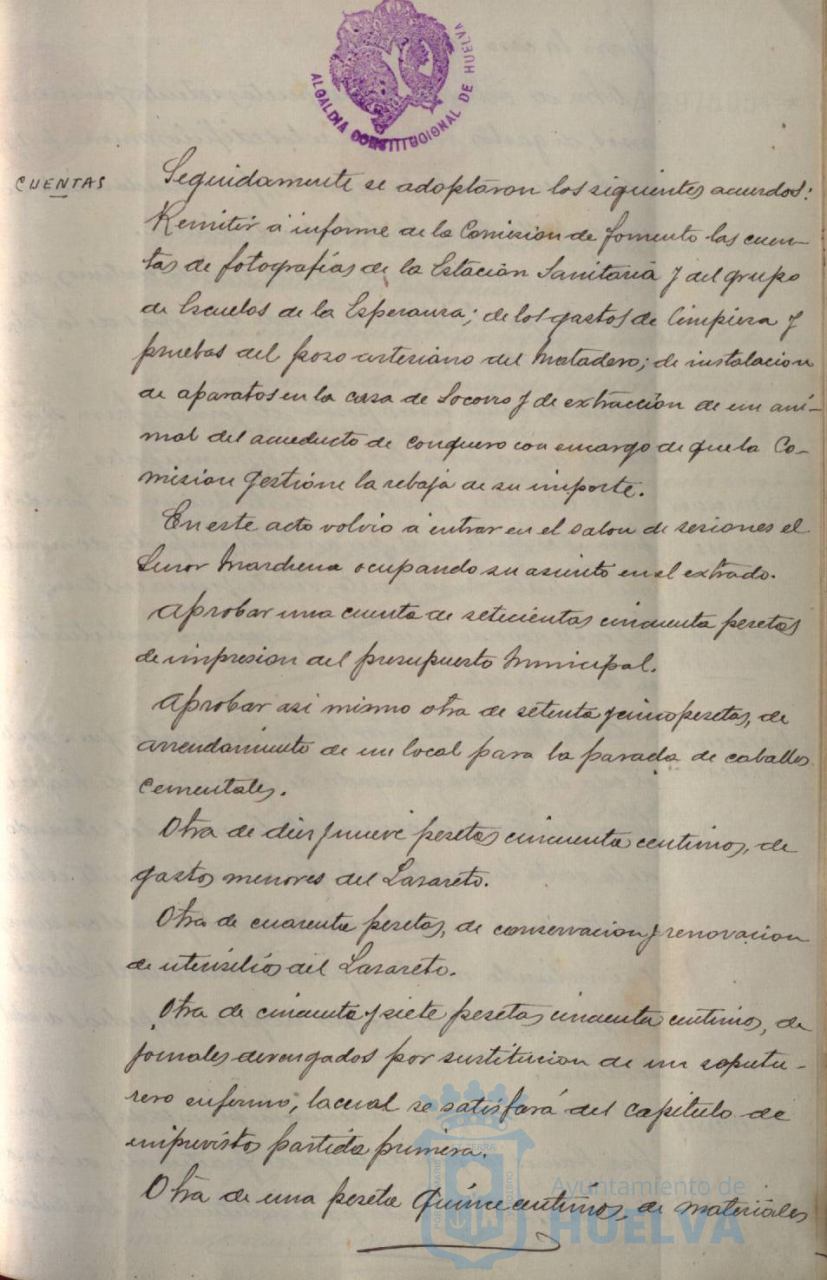 ALCALDIA CONSTITUCIONAL DE HUELVA
CUENTAS
Seguidamente se adoptaron los siguientes acuerdos:
Remitir á informe de la Comision de fomento las cuen-
tas de fotografías de la Estación Sanitaria y del grupo
de Escuelas de la Esperanza; de los gastos de limpieza y
pruebas del pozo artesiano del Matadero; de instalacion
de aparatos en la casa de Socorro y de extracción de un aní-
mal del acueducto de conquero con encargo de que la Co-
mision gestióne la rebaja de su importe.
En este acto volvio á entrar en el salon de sesiones el
Señor Marchena ocupando su asiento en el extrado.
Aprobar una cuenta de setecientas cincuenta pesetas
de impresion del presupuesto Municipal.
Aprobar asi mismo otra de setenta y cinco pesetas, de
arrendamiento de un local para la parada de caballos
cementales.
Otra de diez y nueve pesetas cincuenta centimos, de
gastos menores del Lazareto.
Otra de cuarenta pesetas, de conservacion y renovacion
de utensilios del Lazareto.
Otra de cincuenta y siete pesetas cincuenta centimos, de
jornales devengados por sustitucion de un sepultu-
rero enfermo, la cual se satisfará del capitulo de
imprevistos partida primera.
Otra de una peseta quince centimos, de materiales
Ayuntamiento de
HUELVA